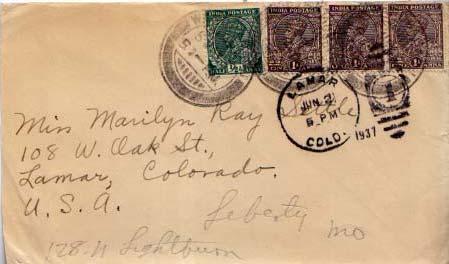 INDIA POSTAGE INDIA POSTAGE INDIA POSTAGE INDIA POSTAGE
LAMAR
JUN 2
5 PM
COLO.
1937
1
Miss Marilyn Ray
108 W. Oak St.,
Lamar, Colorado.
U.S.A.
Liberty Mo
128-N Lightburn